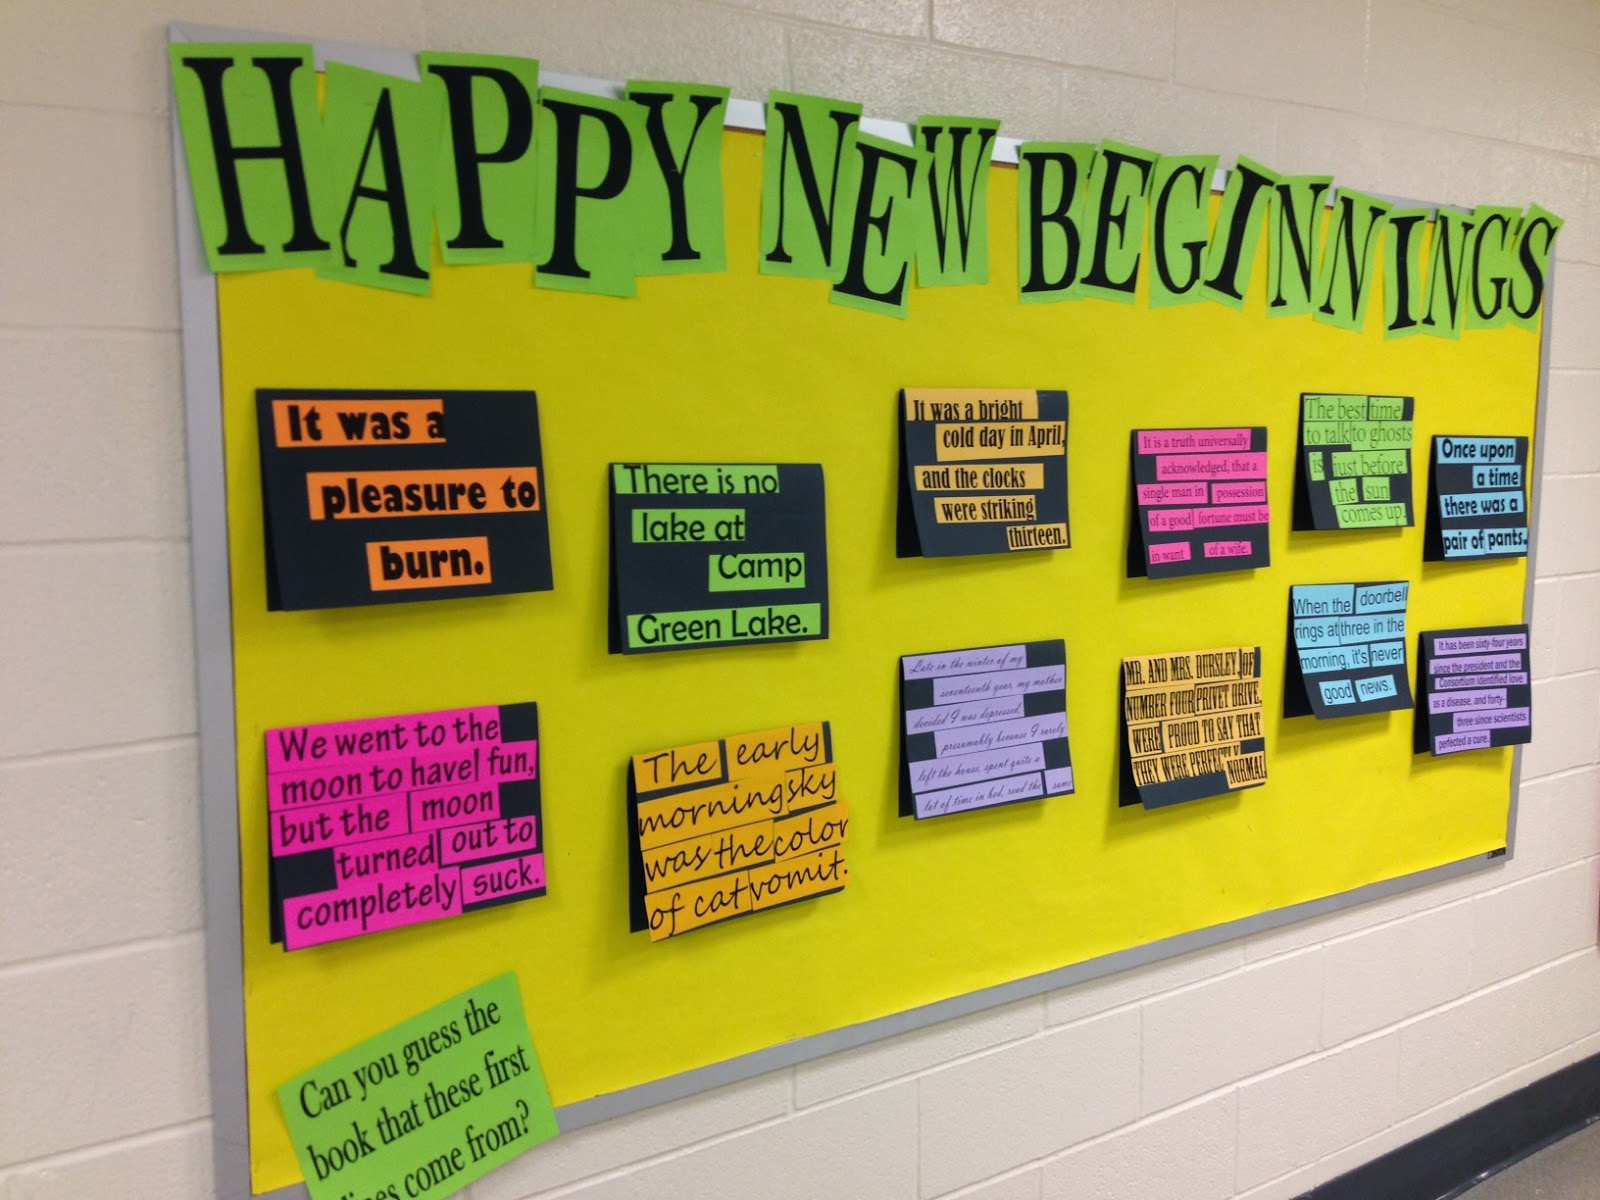 HAPPY NEW BEGINNINGS
It was a
pleasure to
burn.
There is no
lake at
Camp
Green Lake.
It was a bright
cold day in April,
and the clocks
were striking
thirteen.
It is a truth universally
acknowledged, that a
single man in possession
of a good fortune must be
in want of a wife.
The best time
to talk to ghosts
is just before
the sun
comes up.
Once upon
a time
there was a
pair of pants.
We went to the
moon to have fun,
but the moon
turned out to
completely suck.
The early
morning sky
was the color
of cat vomit.
Late in the winter of my
seventeenth year, my mother
decided I was depressed,
presumably because I rarely
left the house, spent quite a
lot of time in bed, read the same
MR. AND MRS. DURSLEY, OF
NUMBER FOUR PRIVET DRIVE,
WERE PROUD TO SAY THAT
THEY WERE PERFECTLY NORMAL
When the doorbell
rings at three in the
morning, it's never
good news.
It has been sixty-four years
since the president and the
Consortium identified love
as a disease, and forty-
three since scientists
perfected a cure.
Can you guess the
book that these first
lines come from?